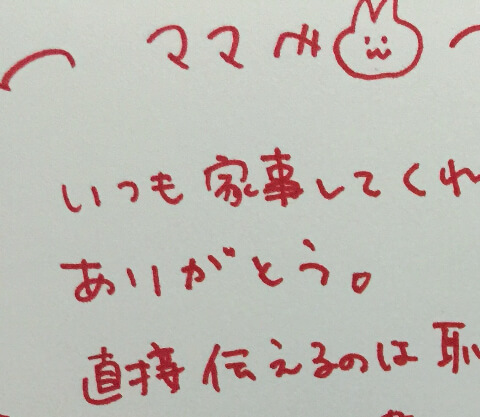 ママへ
いつも家事してくれ
ありがとう。
直接伝えるのは恥